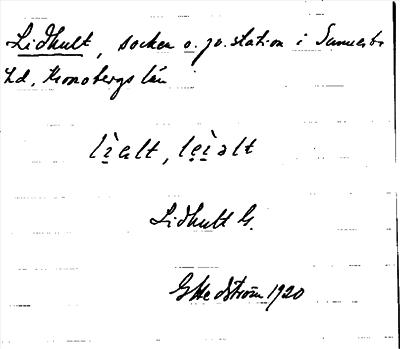 Lidhult, socken o. jv. station i Sunnerbo
hd, Kronobergs län
lìalt, lẹìalt
Lidhult G.
G Hedström 1920